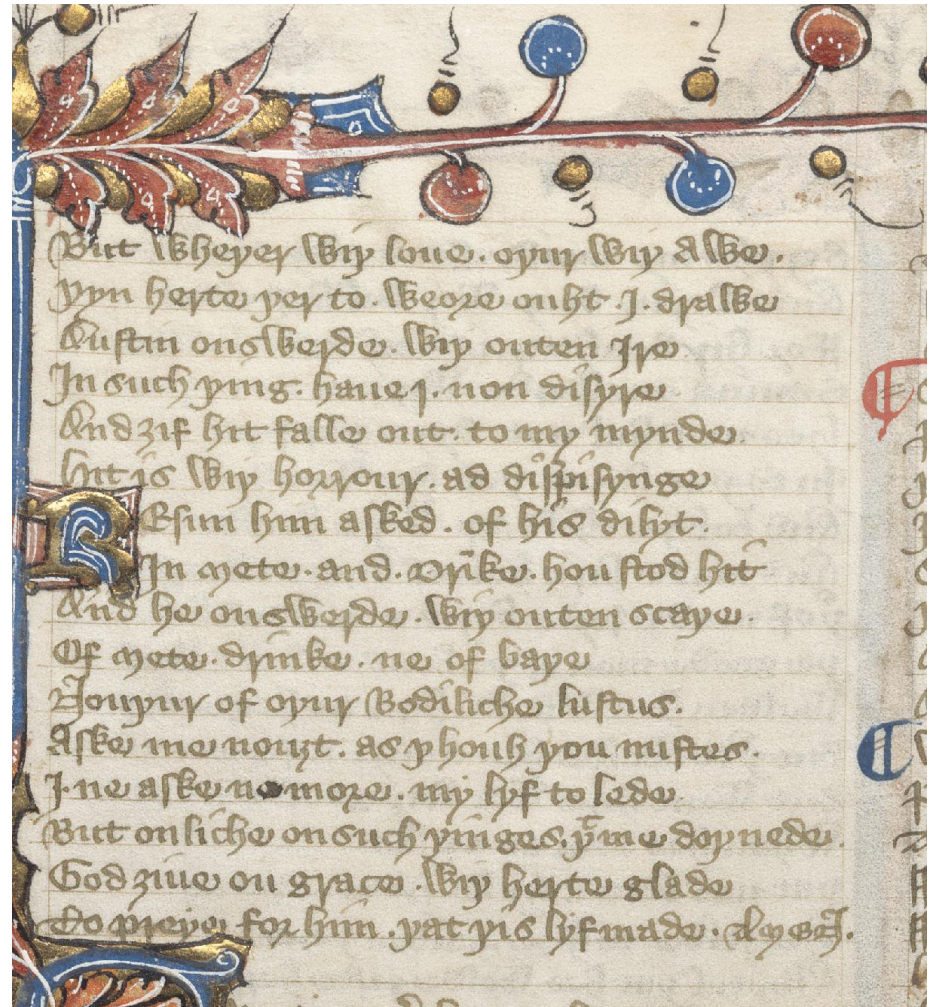 But wheþer wiþ loue . oþur wiþ Awe .
Þyn herte þer to . weore ouht . I . drawe
Austin onswerde . wiþ outen Ire
In such þing . haue I . non disyre
And ȝif hit falle out . to my mynde
Hit is wiþ horrour . ad dispisynge
REsun him asked . of his dilyt .
In mete . and . Drīke . hou stod hit
And he onswerde . wiþ outen scaþe .
Of mete . drinke . ne of baþe
Nouþur of oþur Bodiliche lustus .
Aske me nouȝt . as þhouh þou nustes .
I . ne aske no more . my lyf to lede
But onliche on such þinges . þt me doþ nede .
God ȝiue ou grace . wiþ herte glade
To preye for him . þat þis lyf made . AMEN .